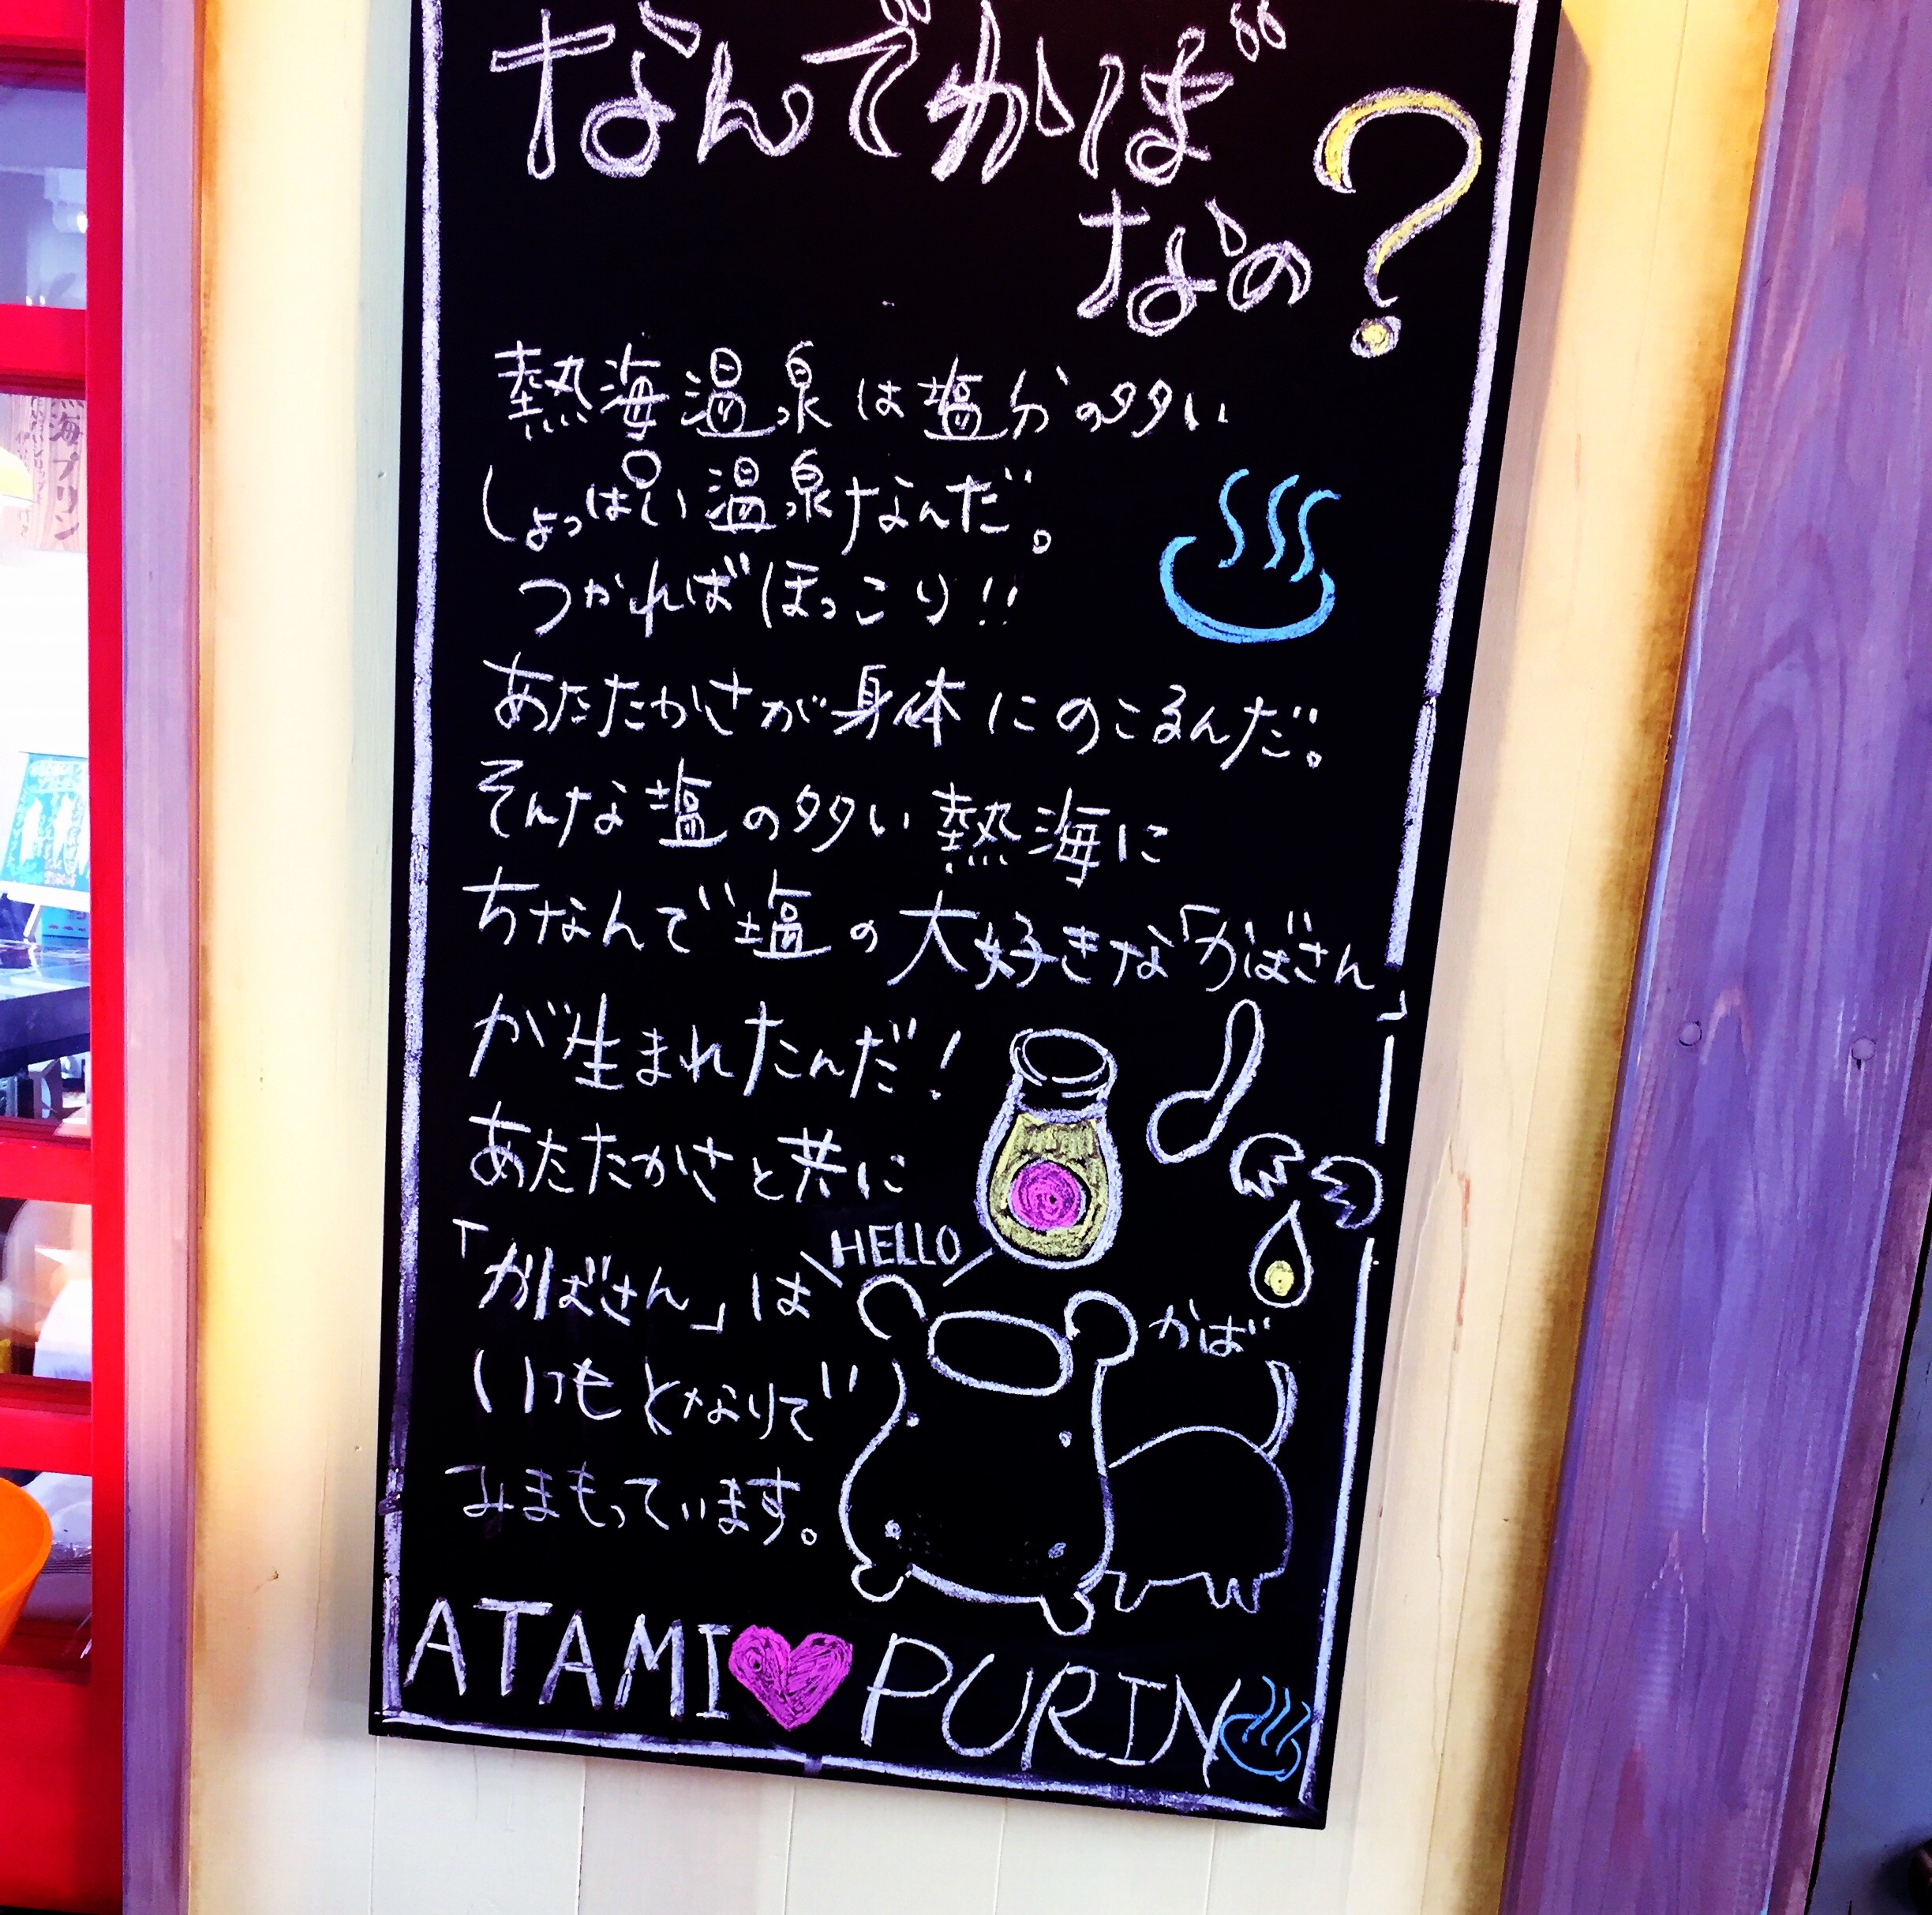 なんでかば
なの?
熱海温泉は塩分の多い
しょっぱい温泉なんだ。
つかればほっこり!!
あたたかさが身体にのこるんだ。
そんな塩の多い熱海に
ちなんで塩の大好きな「かばさん」
が生まれたんだ!
あたたかさと共に
「かばさん」は
いつもとなりで
みまもっています。
HELLO
かば
ATAMI PURIN
海プリン